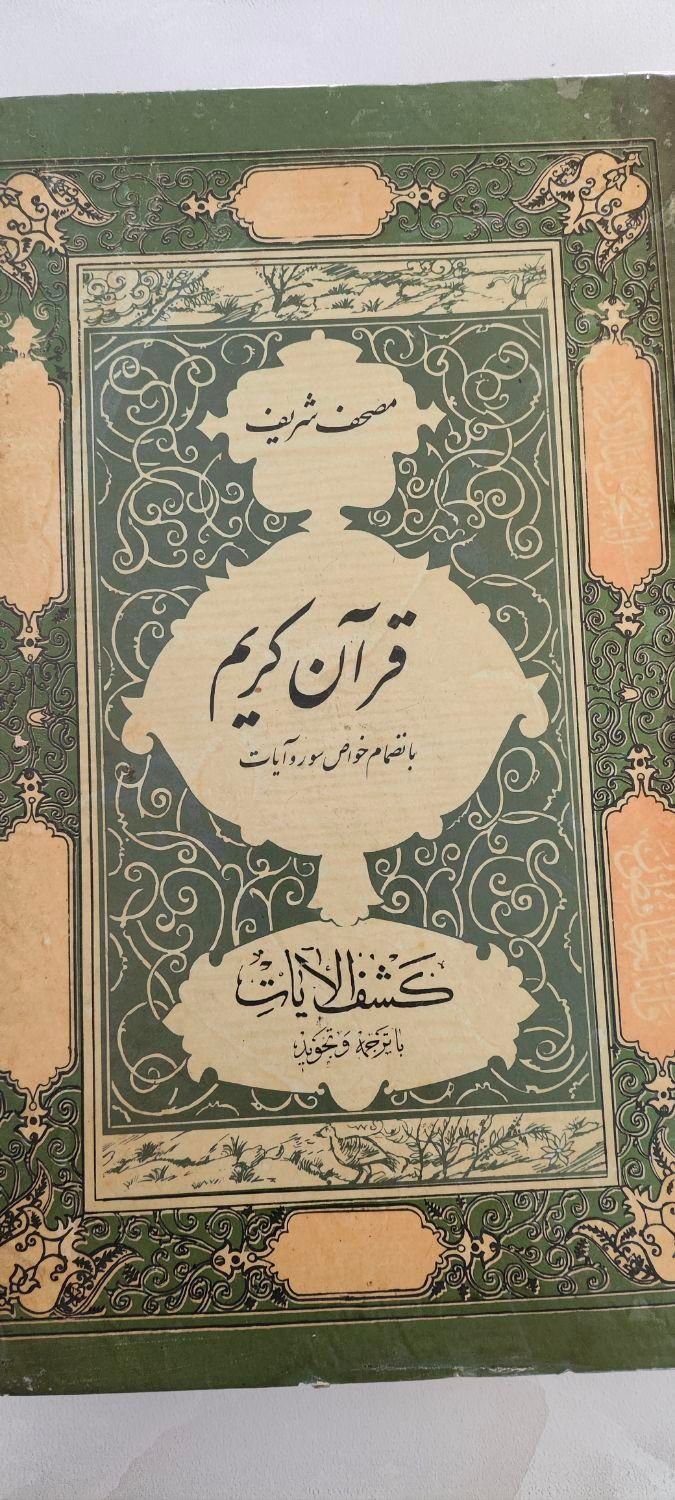 مصحف شریف
قرآن کریم
بانضمام خواص سور و آیات
کشف الآیات
با ترجمه و تجوید